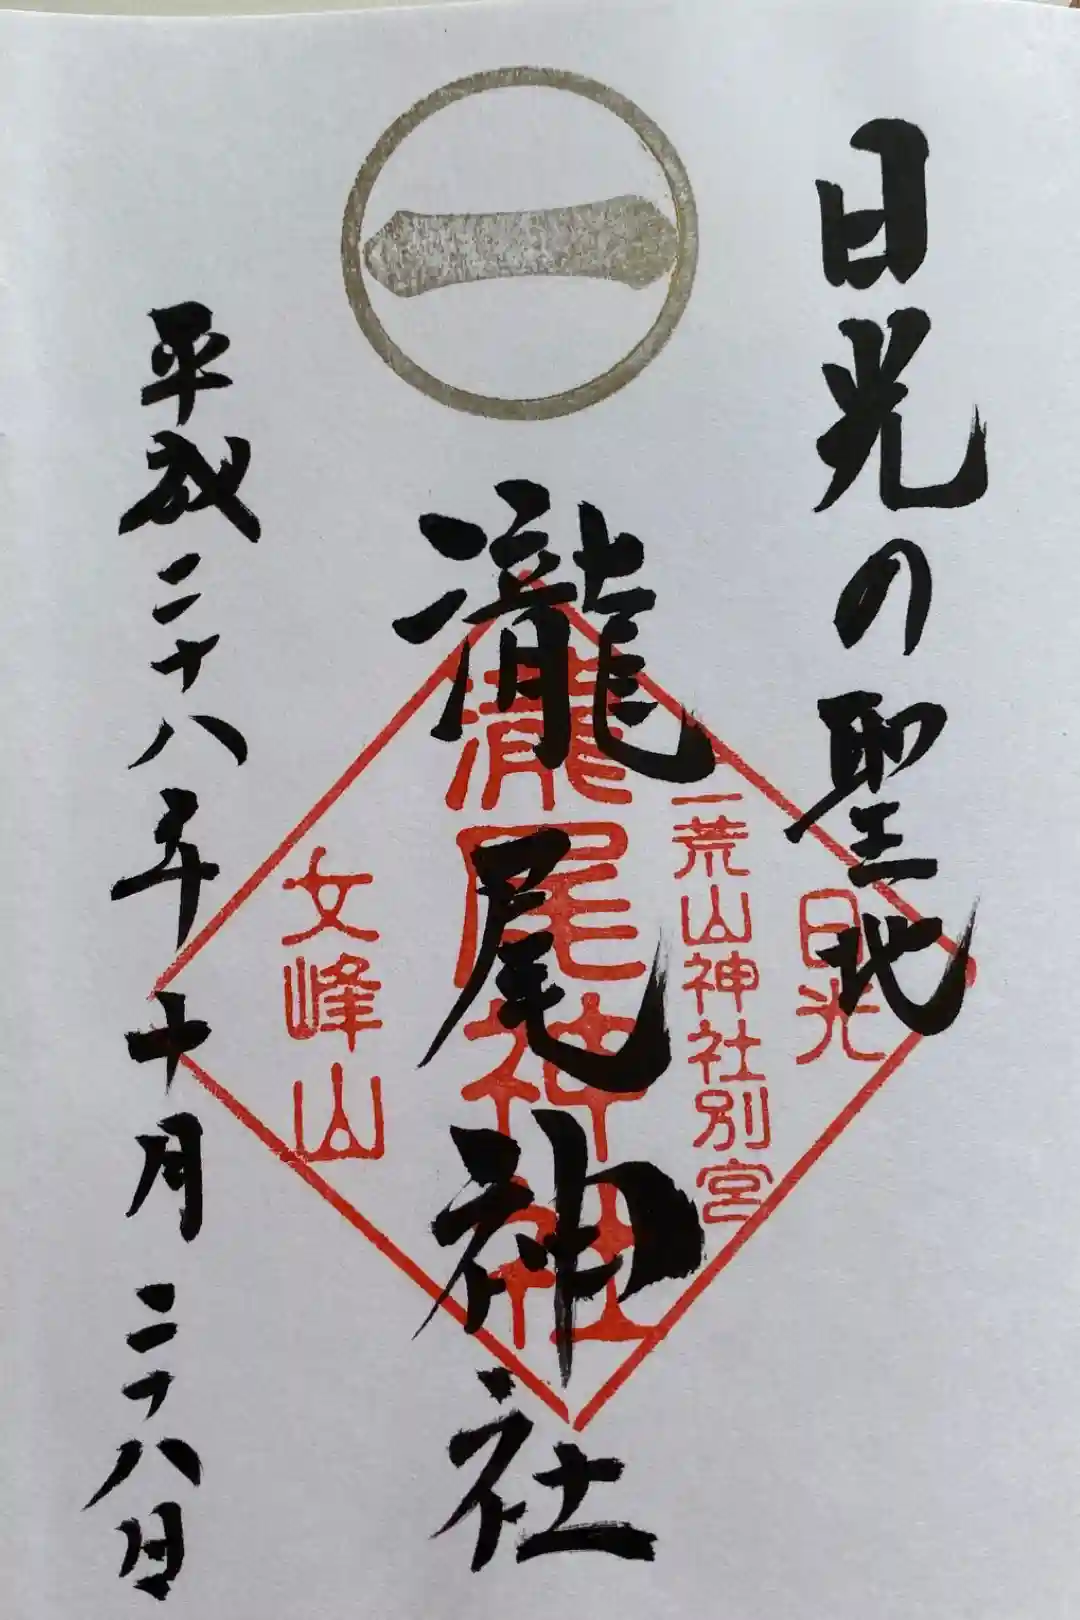 日光の聖地
瀧尾神社
平成二十八年十月二十八日
一
日光
二荒山神社別宮
瀧尾神社
女峰山